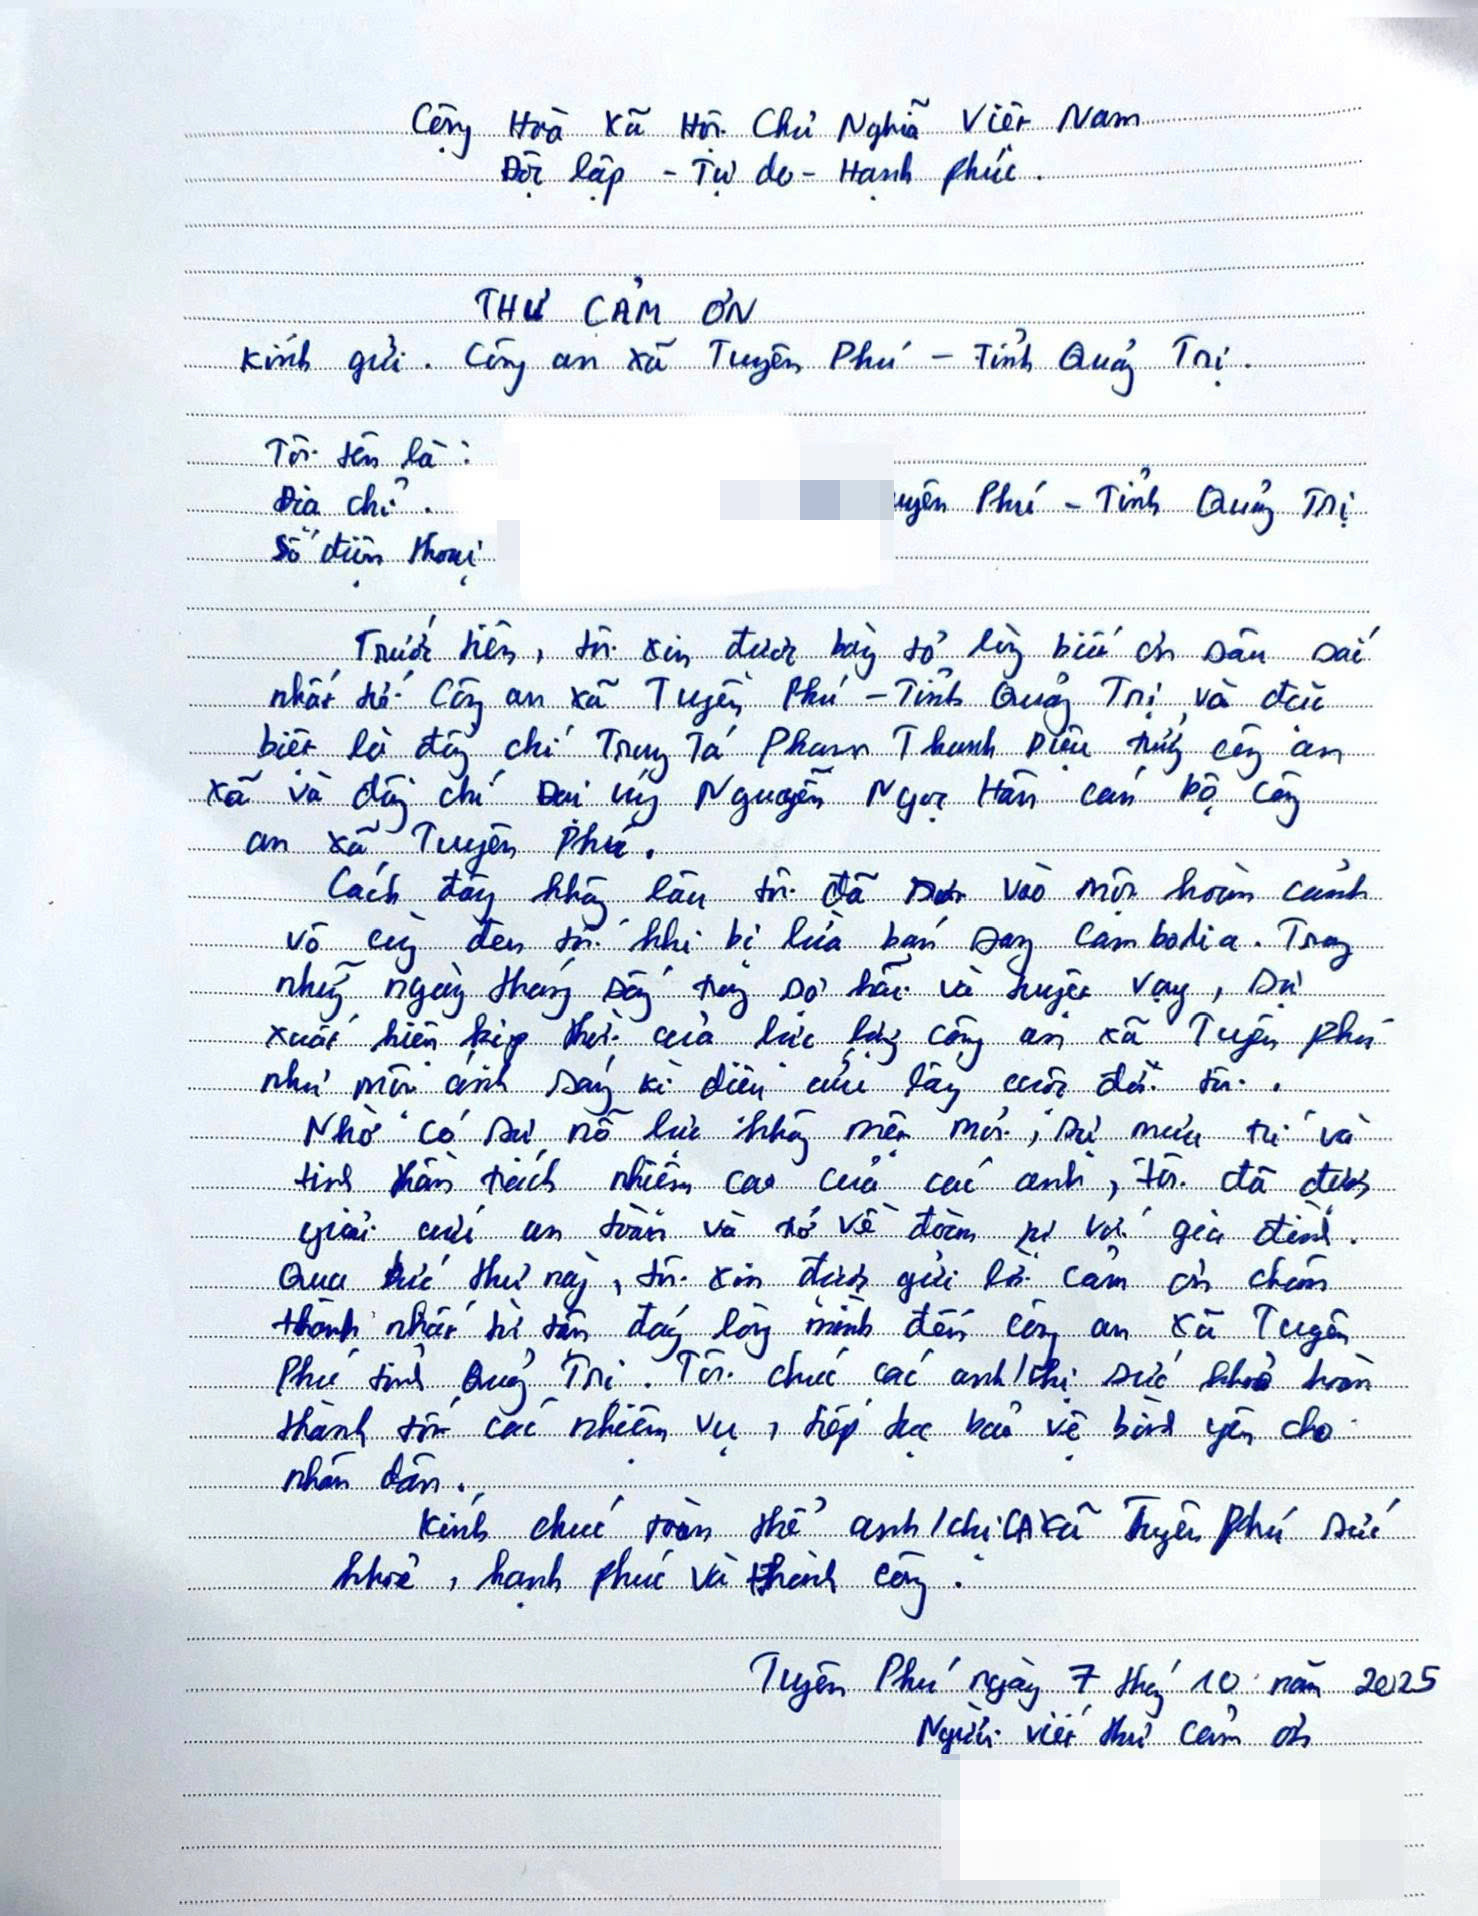 Cộng Hoà Xã Hội Chủ Nghĩa Việt Nam
Độc lập - Tự do - Hạnh phúc.
THƯ CẢM ƠN
Kính gửi. Công an xã Tuyên Phú - Tỉnh Quảng Trị.
Tôi tên là :
Địa chỉ . uyên Phú - Tỉnh Quảng Trị
Số điện thoại
Trước tiên, tôi xin được bày tỏ lòng biết ơn sâu sắc
nhất tới Công an xã Tuyên Phú - Tỉnh Quảng Trị, và đặc
biệt là đồng chí Trung Tá Phạm Thanh Diệu trưởng công an
xã và đồng chí Đại úy Nguyễn Ngọc Hân cán bộ công
an xã Tuyên Phú.
Cách đây không lâu tôi đã rơi vào một hoàn cảnh
vô cùng đen tối khi bị lừa bán sang Cambodia. Trong
những ngày tháng sống trong sợ hãi và tuyệt vọng, sự
xuất hiện kịp thời của lực lượng công an xã Tuyên Phú
như một ánh sáng kì diệu cứu lấy cuộc đời tôi.
Nhờ có sự nỗ lực không mệt mỏi, sự mưu trí và
tinh thần trách nhiệm cao của các anh, tôi đã được
giải cứu an toàn và trở về đoàn tụ với gia đình.
Qua bức thư này, tôi xin được gửi lời cảm ơn chân
thành nhất từ tận đáy lòng mình đến công an xã Tuyên
Phú tỉnh Quảng Trị. Tôi chúc các anh/chị sức khoẻ hoàn
thành tốt các nhiệm vụ, tiếp tục bảo vệ bình yên cho
nhân dân.
Kính chúc toàn thể anh/chị CA xã Tuyên Phú sức
khoẻ, hạnh phúc và thành công.
Tuyên Phú ngày 7 tháng 10 năm 2025
Người viết thư cảm ơn